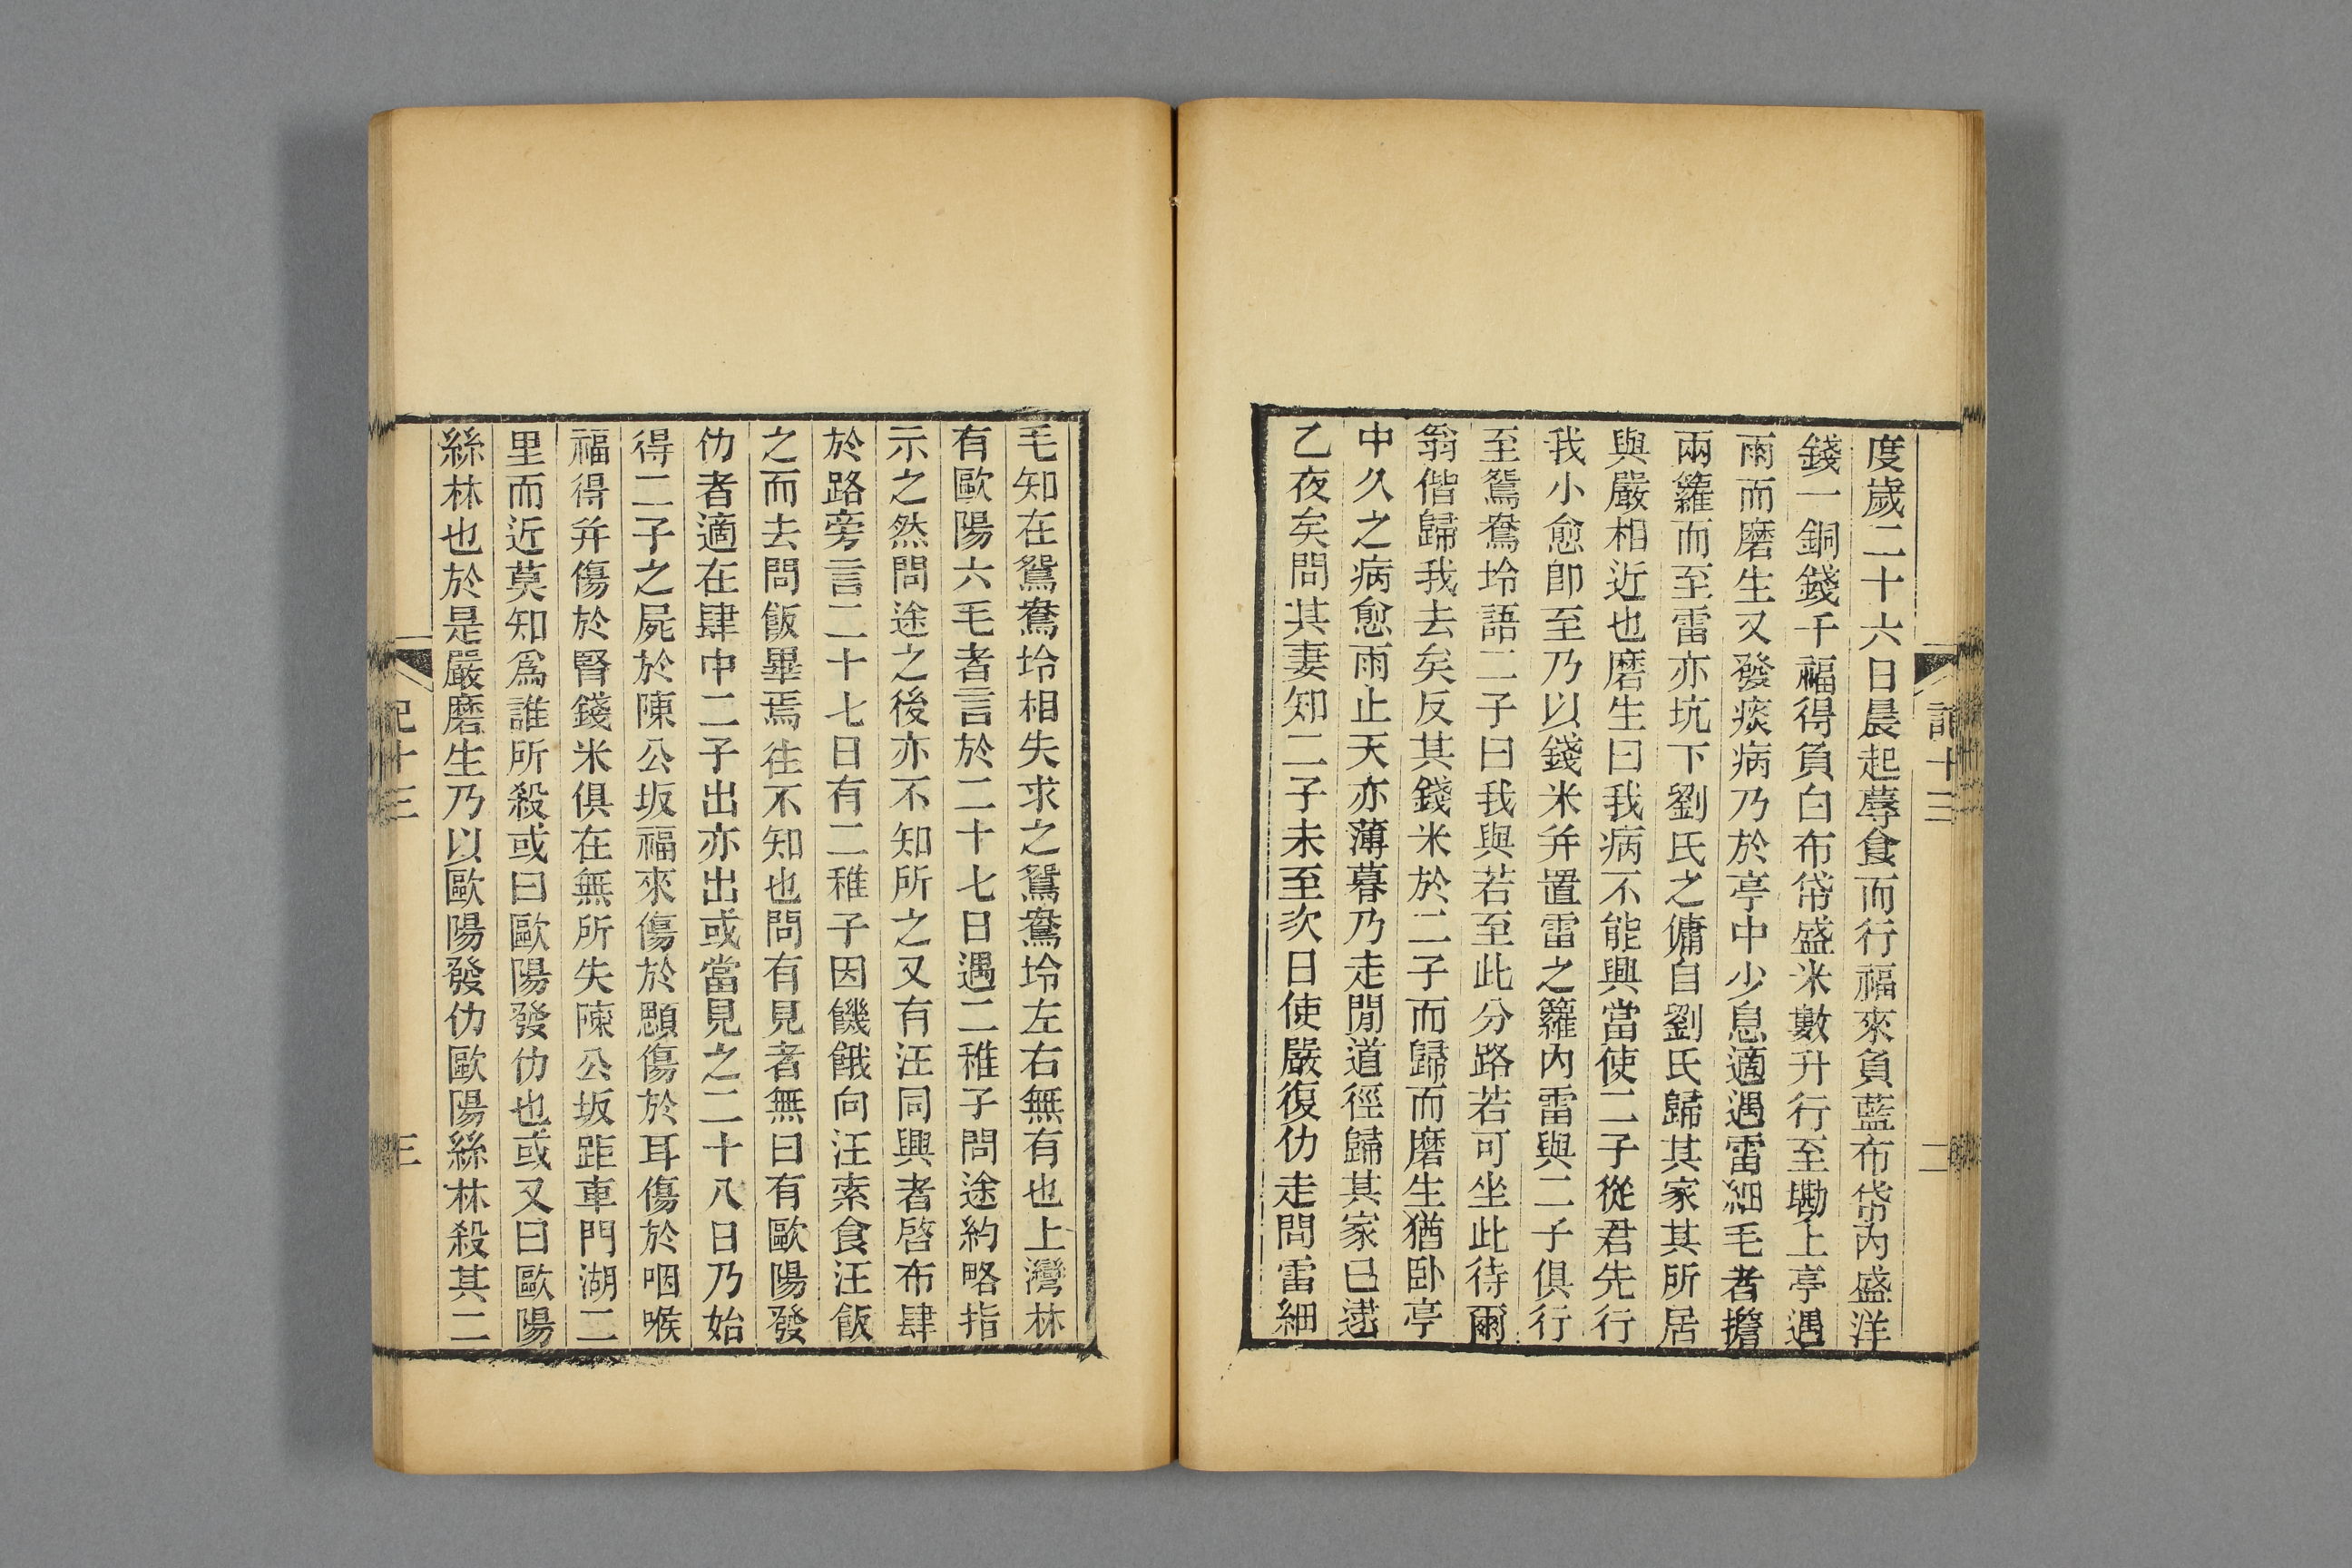 度歲二十六日晨起蓐食而行福來負藍布帒內盛洋
錢一銅錢千福得負白布帒盛米數升行至墈上亭遇
雨而磨生又發痰病乃於亭中少息適遇雷細毛者擔
兩籮而至雷亦坑下劉氏之傭自劉氏歸其家其所居
與嚴相近也磨生曰我病不能興當使二子從君先行
我小愈卽至乃以錢米并置雷之籮內雷與二子俱行
至鴛鴦坽語二子曰我與若至此分路若可坐此待爾
翁偕歸我去矣反其錢米於二子而歸而磨生猶卧亭
中久之病愈雨止天亦薄暮乃走閒道徑歸其家已逮
乙夜矣問其妻知二子未至次日使嚴復仂走問雷細
記十三
二
毛知在鴛鴦坽相失求之鴛鴦坽左右無有也上灣林
有歐陽六毛者言於二十七日遇二稚子問途約略指
示之然問途之後亦不知所之又有汪同興者啓布肆
於路旁言二十七日有二稚子因饑餓向汪索食汪飯
之而去問飯畢焉往不知也問有見者無曰有歐陽發
仂者適在肆中二子出亦出或當見之二十八日乃始
得二子之屍於陳公坂福來傷於顋傷於耳傷於咽喉
福得并傷於腎錢米俱在無所失陳公坂距車門湖二
里而近莫知爲誰所殺或曰歐陽發仂也或又曰歐陽
絲林也於是嚴磨生乃以歐陽發仂歐陽絲林殺其二
記十三
三